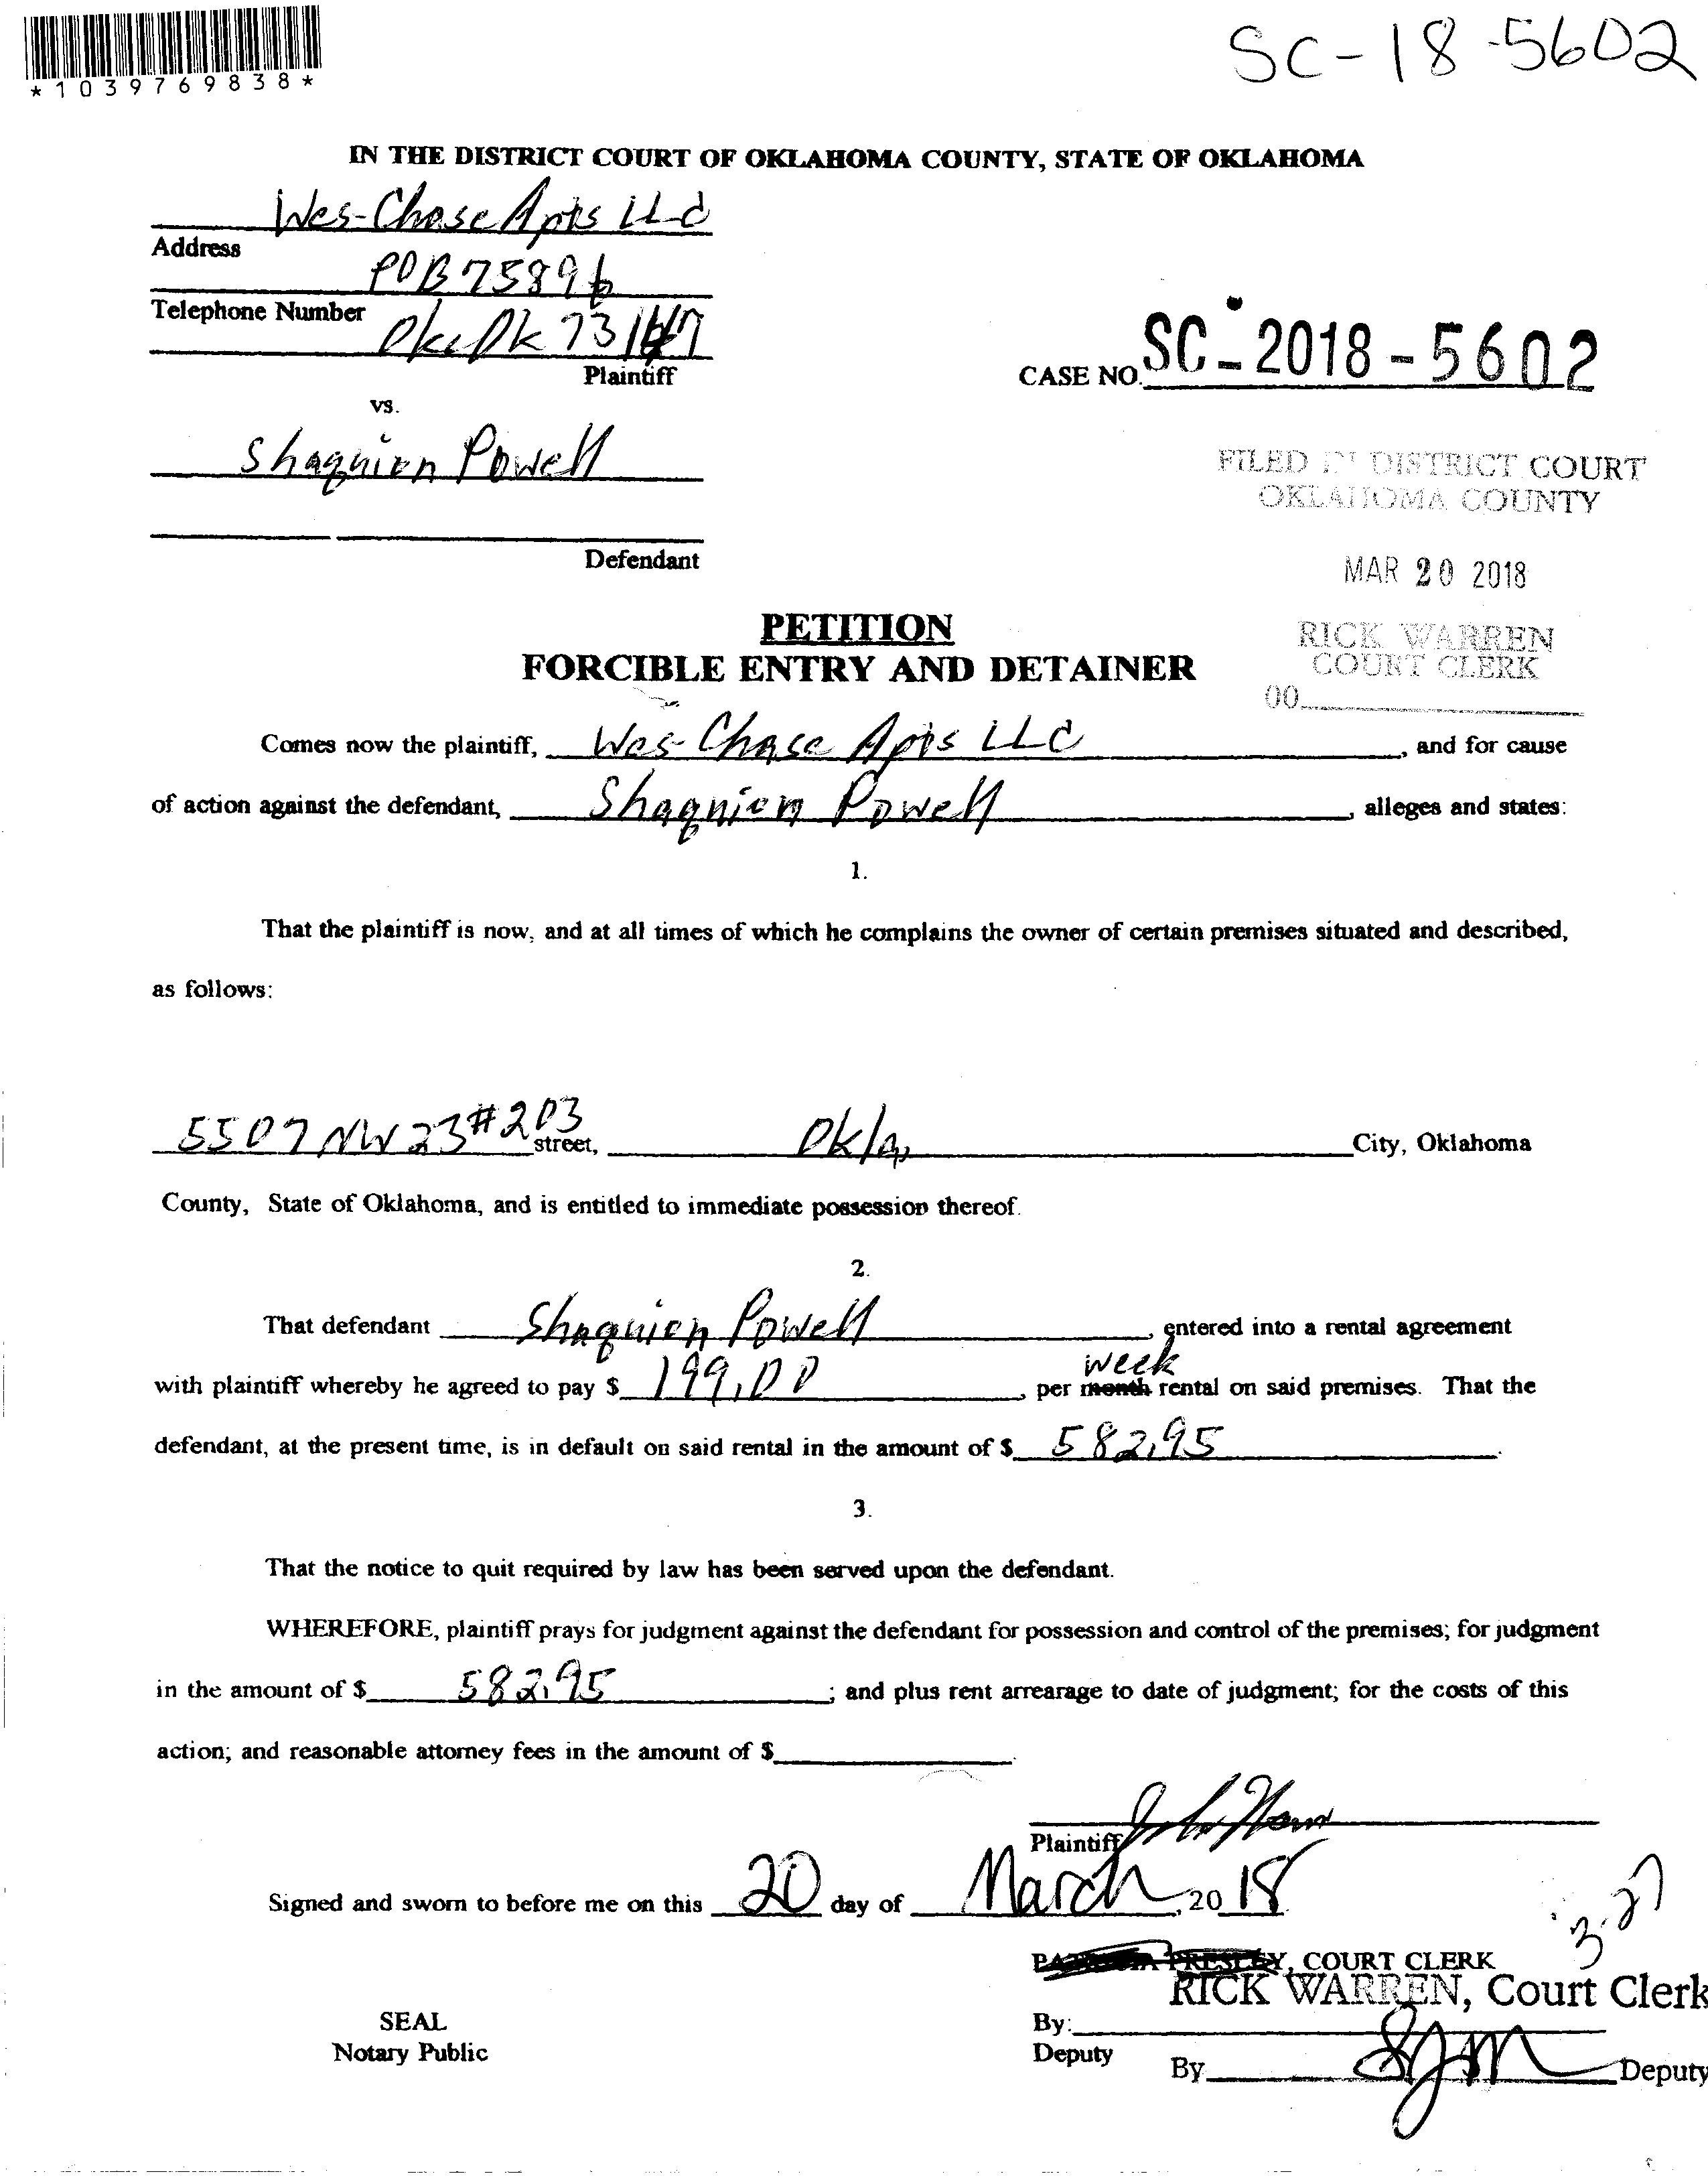 *1039769838*
SC-18-5602
IN THE DISTRICT COURT OF OKLAHOMA COUNTY, STATE OF OKLAHOMA
Wes-Chase Apts LLC
Address
POB 75896
Telephone Number
Okc Ok 73147
Plaintiff
CASE NO. SC-2018-5602
vs.
Powell
FILED IN DISTRICT COURT
OKLAHOMA COUNTY
Defendant
MAR 20 2018
PETITION
RICK WARREN
FORCIBLE ENTRY AND DETAINER
COURT CLERK
00
Comes now the plaintiff, Wes-Chase Apts LLC, and for cause
of action against the defendant, Powell, alleges and states:
1.
That the plaintiff is now, and at all times of which he complains the owner of certain premises situated and described,
as follows:
5507 NW 23 #203 street, Okla, City, Oklahoma
County, State of Oklahoma, and is entitled to immediate possession thereof.
2.
That defendant Powell, entered into a rental agreement
week
with plaintiff whereby he agreed to pay $ 199.00, per month rental on said premises. That the
defendant, at the present time, is in default on said rental in the amount of $ 582.95.
3.
That the notice to quit required by law has been served upon the defendant.
WHEREFORE, plaintiff prays for judgment against the defendant for possession and control of the premises; for judgment
in the amount of $ 582.95; and plus rent arrearage to date of judgment; for the costs of this
action; and reasonable attorney fees in the amount of $
Plaintiff
Signed and sworn to before me on this 20 day of March, 20 18.
3-27
PRESLEY, COURT CLERK
RICK WARREN, Court Clerk
SEAL
By:
Notary Public
Deputy
By Deputy